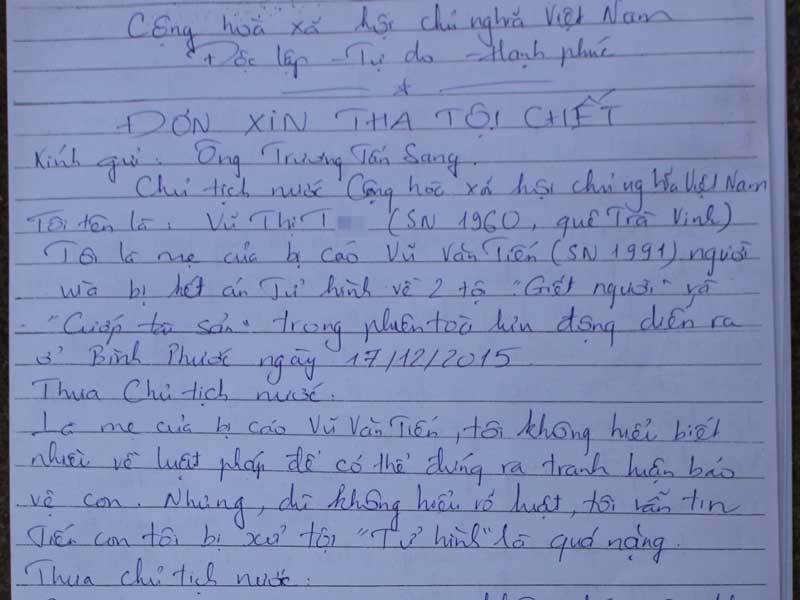 Cộng hoà xã hội chủ nghĩa Việt Nam
Độc lập - Tự do - Hạnh phúc
ĐƠN XIN THA TỘI CHẾT
Kính gửi: Ông Trương Tấn Sang.
Chủ tịch nước Cộng hoà xã hội chủ nghĩa Việt Nam
Tôi tên là: Vũ Thị T (SN 1960, quê Trà Vinh)
Tôi là mẹ của bị cáo Vũ Văn Tiến (SN 1991) người
vừa bị kết án Tử hình về 2 tội "Giết người" và
"Cướp tài sản" trong phiên toà lưu động diễn ra
ở Bình Phước ngày 17/12/2015.
Thưa Chủ tịch nước.
Là mẹ của bị cáo Vũ Văn Tiến, tôi không hiểu biết
nhiều về luật pháp để có thể đứng ra tranh luận bảo
vệ con. Nhưng, dù không hiểu rõ luật, tôi vẫn tin
Tiến con tôi bị xử tội "Tử hình" là quá nặng.
Thưa chủ tịch nước: